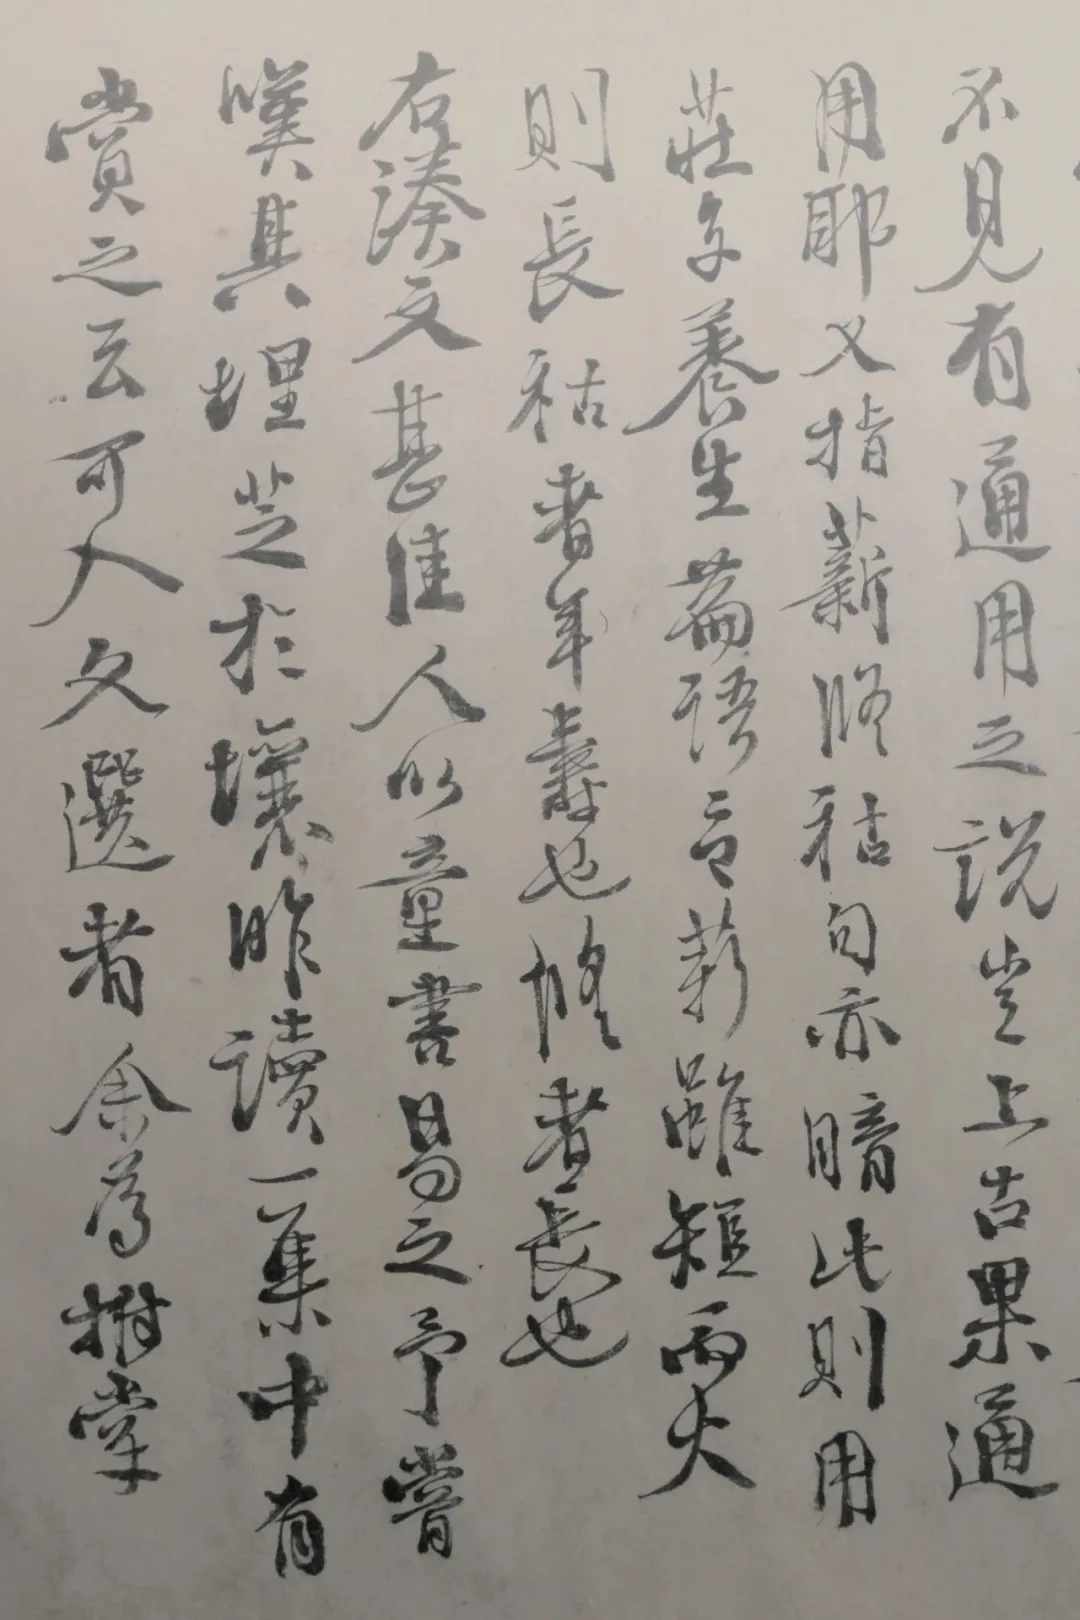 不見有通用之說豈上古果通
用耶又指薪脩祜句亦暗此則用
莊子養生篇語言薪雖短而火
則長祜者年壽也脩者長也
右湊文甚佳人以童書易之予嘗
嘆其埋芝於壤昨讀一集中有
賞之云可入文選者余為拊掌